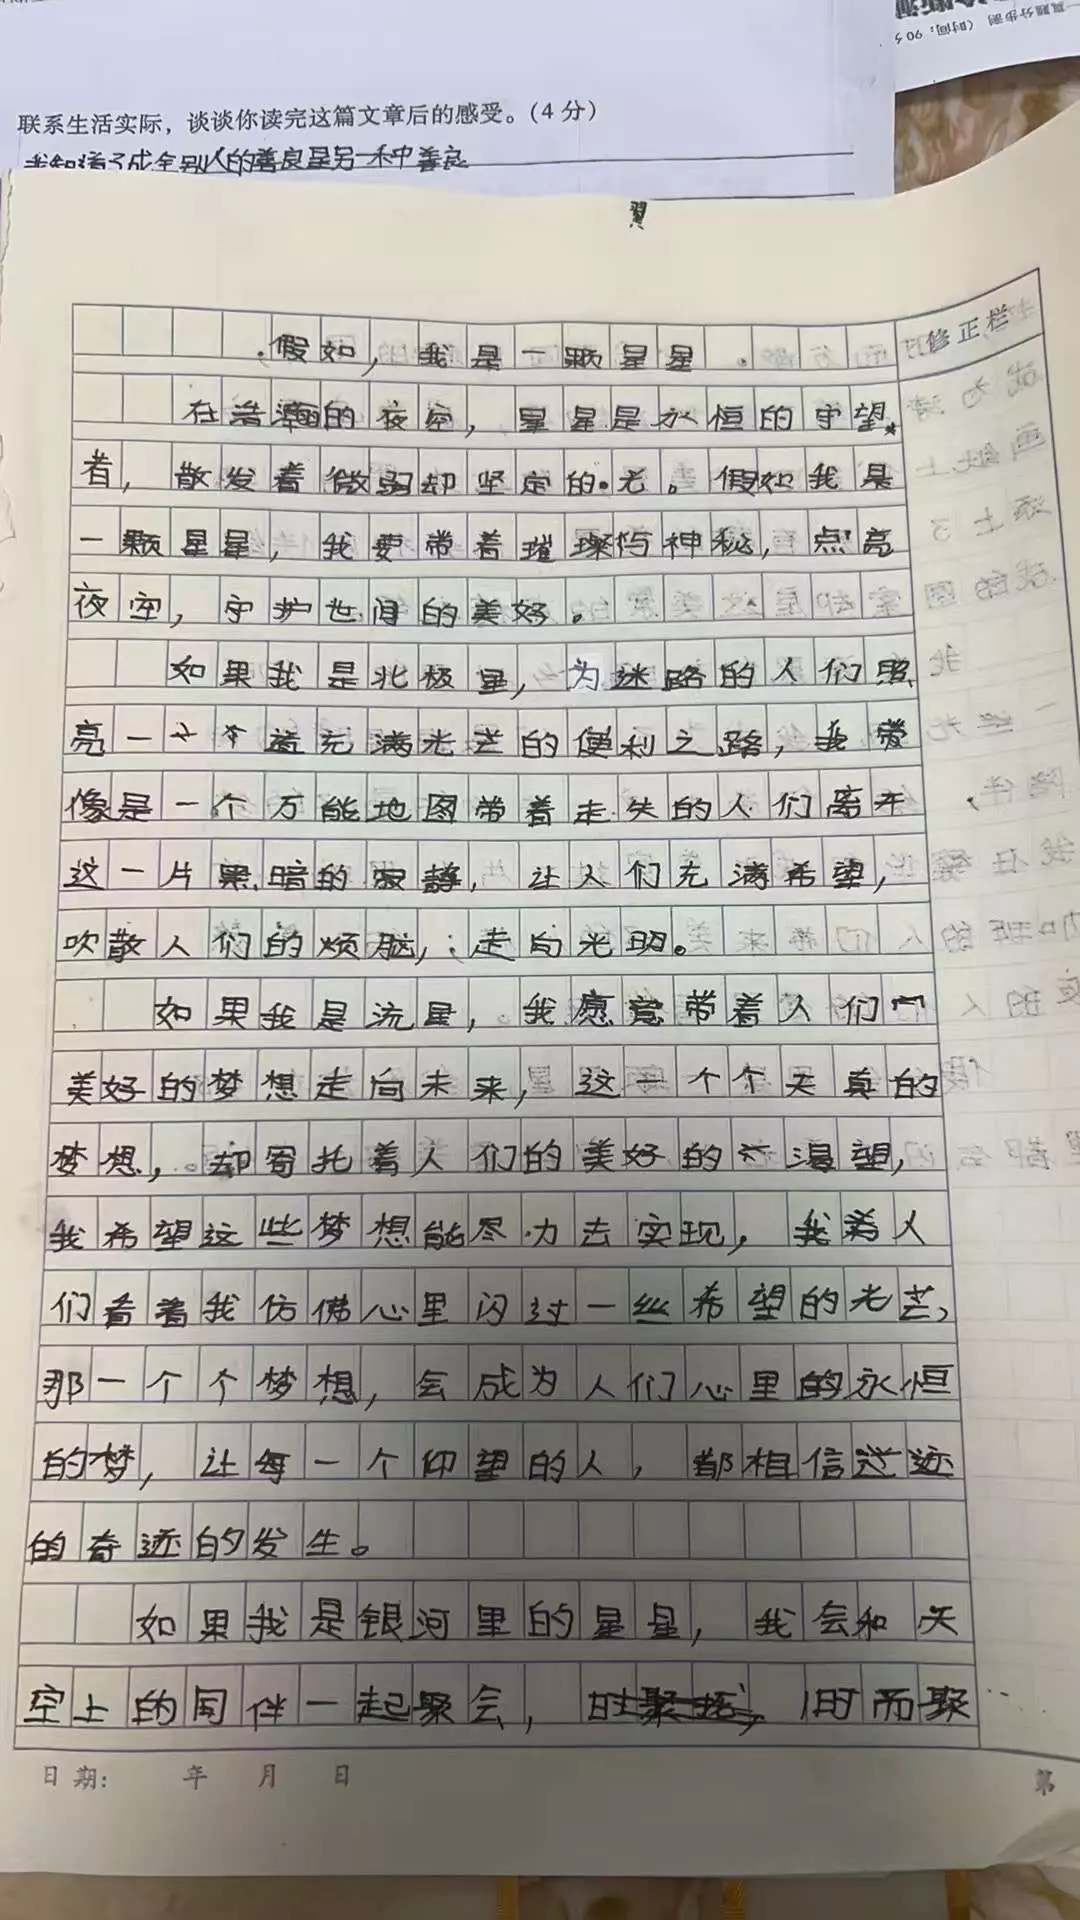 真题分步测 (时间：90分
联系生活实际，谈谈你读完这篇文章后的感受。(4分)
我知道了成全别人的善良是另一种善良
翼
修正栏
假如，我是一颗星星
在浩瀚的夜空，星星是永恒的守望
者，散发着微弱却坚定的光。假如我是
一颗星星，我要带着璀璨与神秘，点亮
夜空，守护世间的美好。
如果我是北极星，为迷路的人们照
亮一个充满光芒的便利之路，我
像是一个万能地图带着走失的人们离开
这一片黑暗的寂静，让人们充满希望，
吹散人们的烦脑，走向光明。
如果我是流星，我愿意带着人们
美好的梦想走向未来，这一个个天真的
梦想，却寄托着人们的美好的望，
我希望这些梦想能尽力去实现，我人
们看着我仿佛心里闪过一丝希望的光芒，
那一个个梦想，会成为人们心里的永恒
的梦，让每一个仰望的人，都相信
的奇迹的发生。
如果我是银河里的星星，我会和天
空上的同伴一起聚会，时而聚
日期： 年 月 日
第